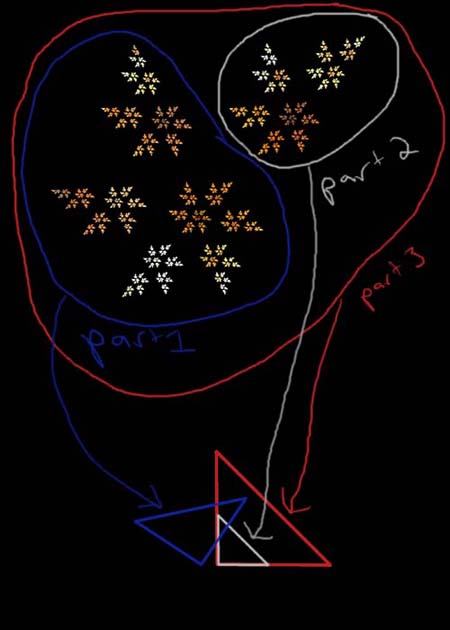 part 2
part 3
part 1